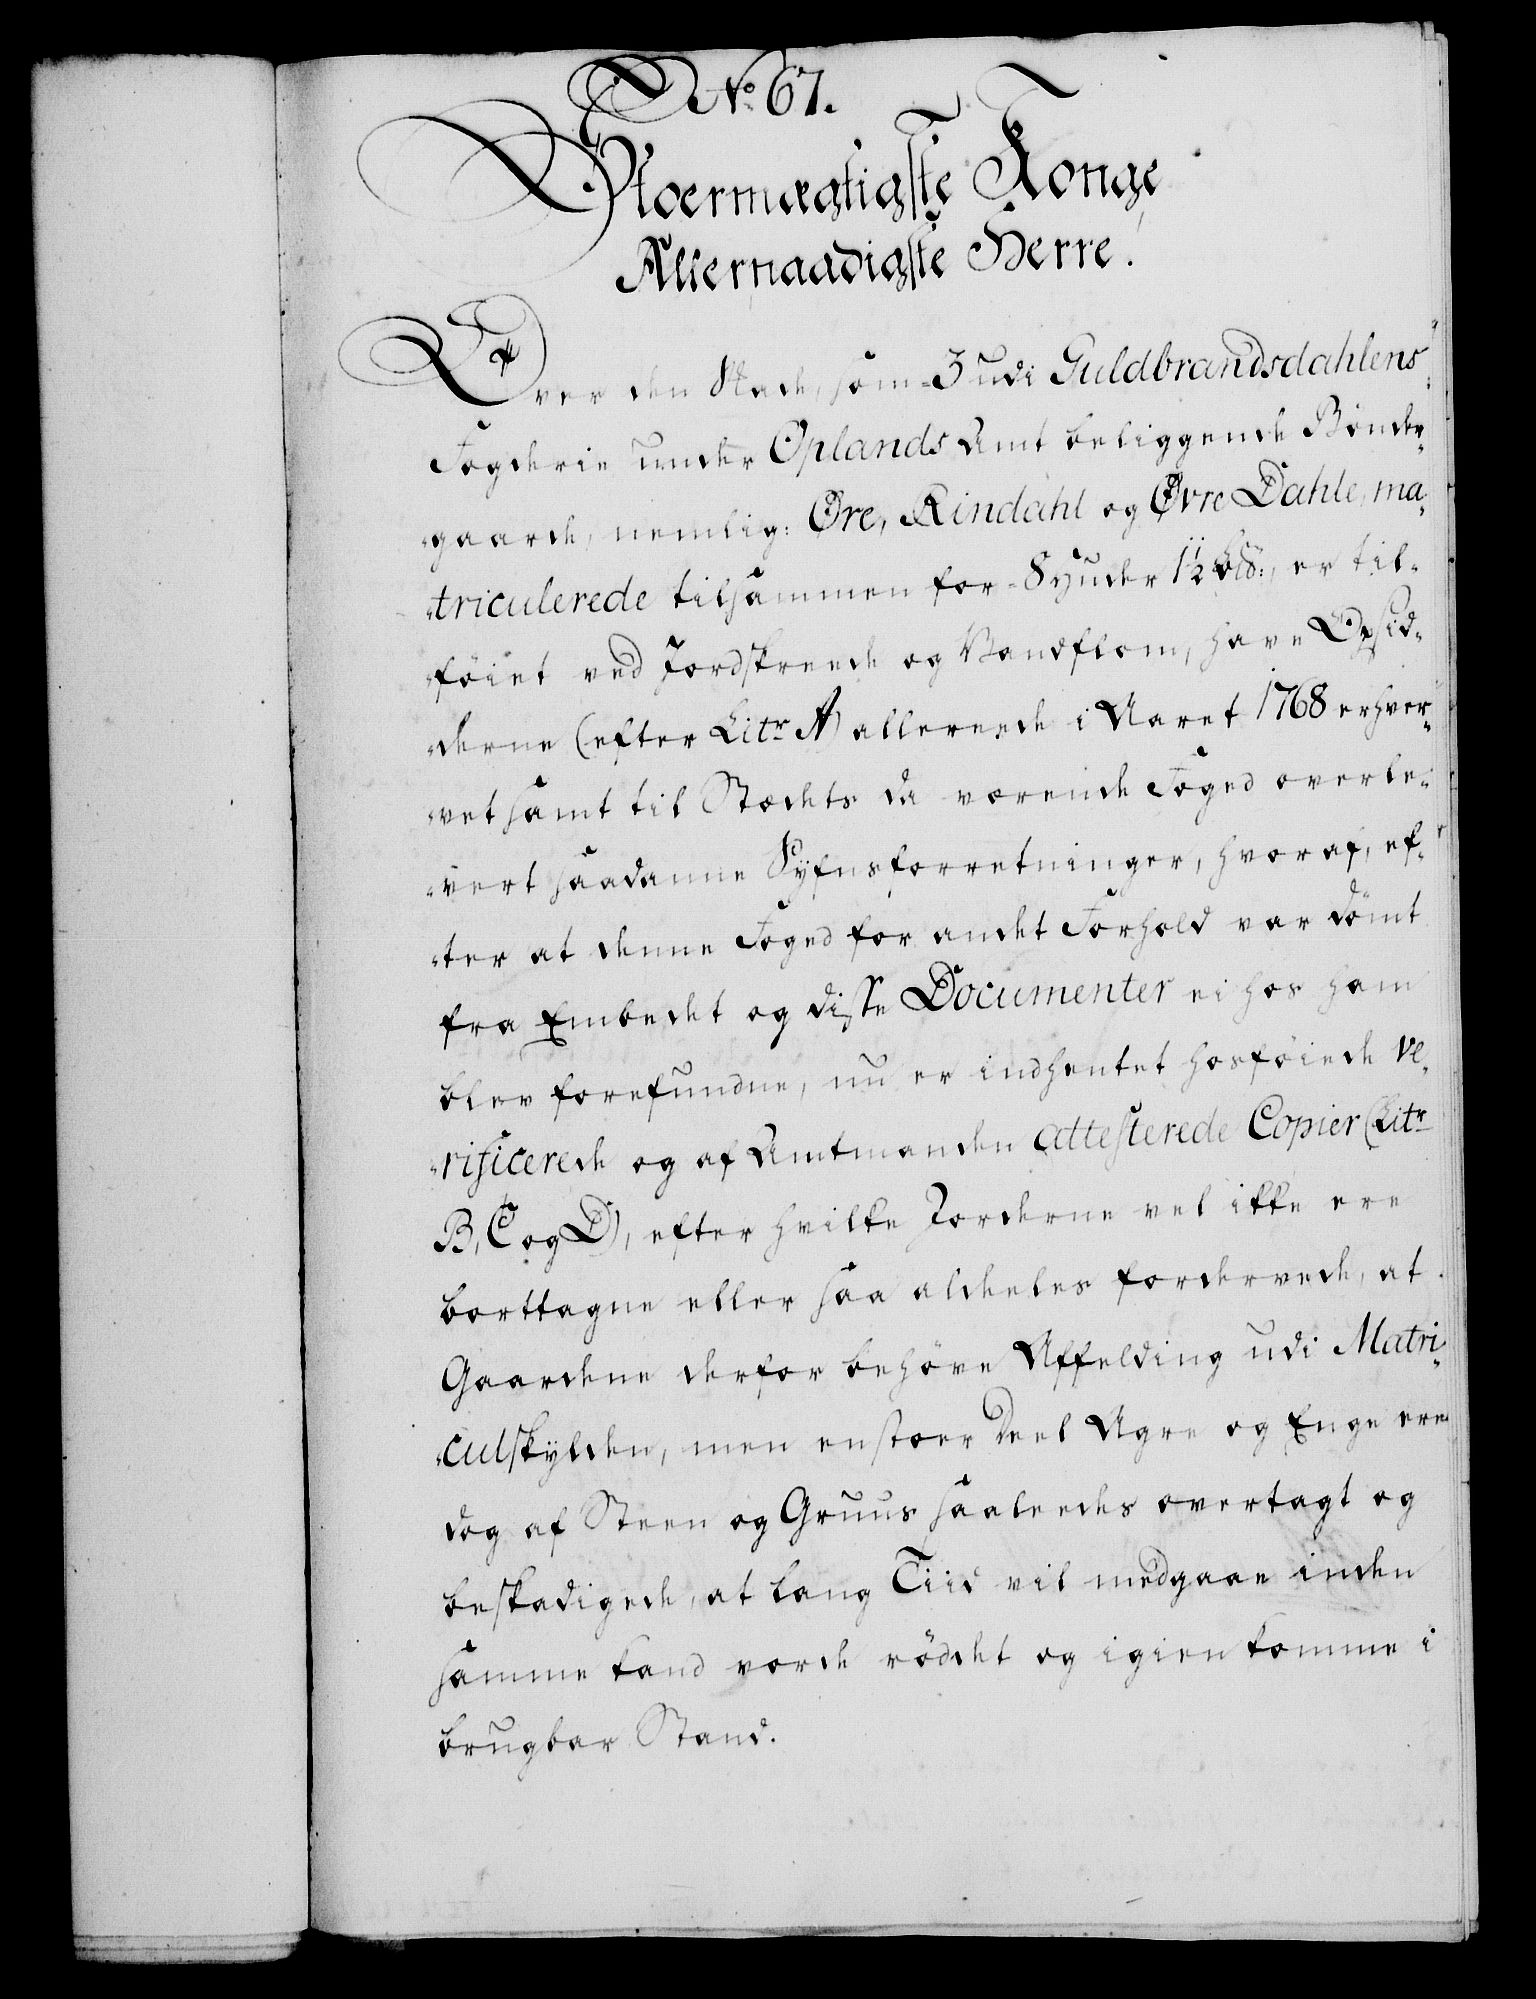 No. 67.
Stoermægtigste Konge
Allernaadigste Herre.
Over den Skade, som 3 udi Guldbrandsdahlens
Fogderie under Oplands Amt beliggende Bønder-
gaarde, nemlig: Øre, Rindahl og Øvre Dahle, ma-
triculerede tilsammen for 8 Huder 1½ Skd:, er til-
føiet ved Jordskreede og Vandflom, have Opsid-
derne (efter Litr A) allereede i Aaret 1768 erhver-
vet samt til Stædets da værende Foged overle-
vert saadanne Syfnsforretninger, hvoraf, ef-
ter at denne Foged for andet Forhold var dömt
fra Embedet og disse Documenter ei hos ham
blev forefundne, nu er indhentet hosføiede ve-
rificerede og af Amtmanden attesterede Copier (Litr
B, C og D), efter hvilke Jorderne vel ikke ere
borttagne eller saa aldeles fordervede, at
Gaardene derfor behöve Affelding udi Matri-
culskylden, men en stoer Deel Agre og Enge ere
dog af Steen og Gruus saaledes overtagt og
beskadigede, at lang Tiid vil medgaae inden
samme kand vorde röddet og igien komme i
brugbar Stand.